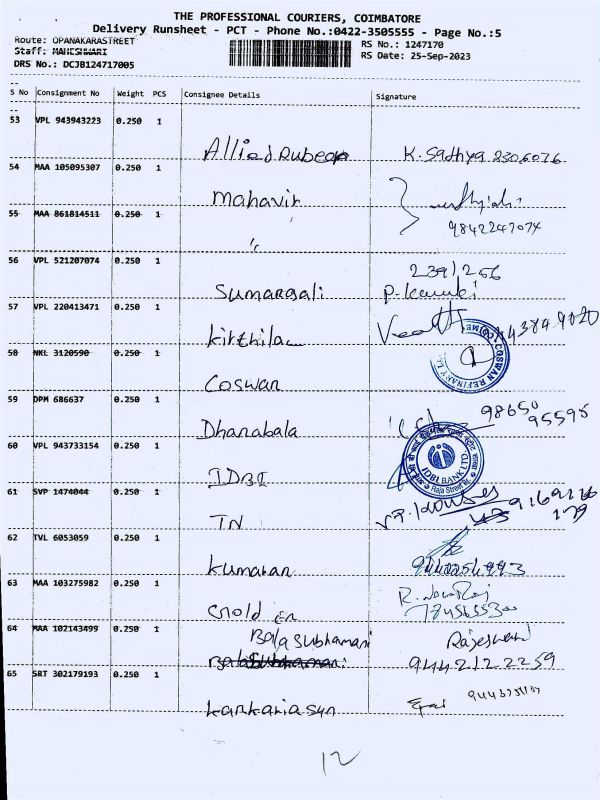 THE PROFESSIONAL COURIERS, COIMBATORE
Delivery Runsheet - PCT - Phone No.:0422-3505555 - Page No.:5
Route: OPANAKARASTREET RS No.: 1247170
Staff: MAHESHWARI RS Date: 25-Sep-2023
DRS No.: DCJB124717005
S No Consignment No Weight PCS Consignee Details Signature
53 VPL 943943223 0.250 1
Allied Rubeer K. Sathya 2306076
54 MAA 105095307 0.250 1
Mahavir
9842247074
55 MAA 861814511 0.250 1
56 VPL 521207074 0.250 1
239/256
Sumangali P.
57 VPL 220413471 0.250 1
kirthilal
58 NKL 3120590 0.250 1
COSWAN REFINARY
Coswan
59 DPM 686637 0.250 1
98650
Dhanabala 95595
60 VPL 943733154 0.250 1
IDBI BANK LTD.
IDBI
61 SVP 1474044 0.250 1
TN
62 TVL 6053059 0.250 1
Kumaran
63 MAA 103275982 0.250 1
R.
64 MAA 102143499 0.250 1
Bala Subhamani Rajeswari
Bala Subhamani 9442122259
65 SRT 302179193 0.250 1
kankaria sun
12